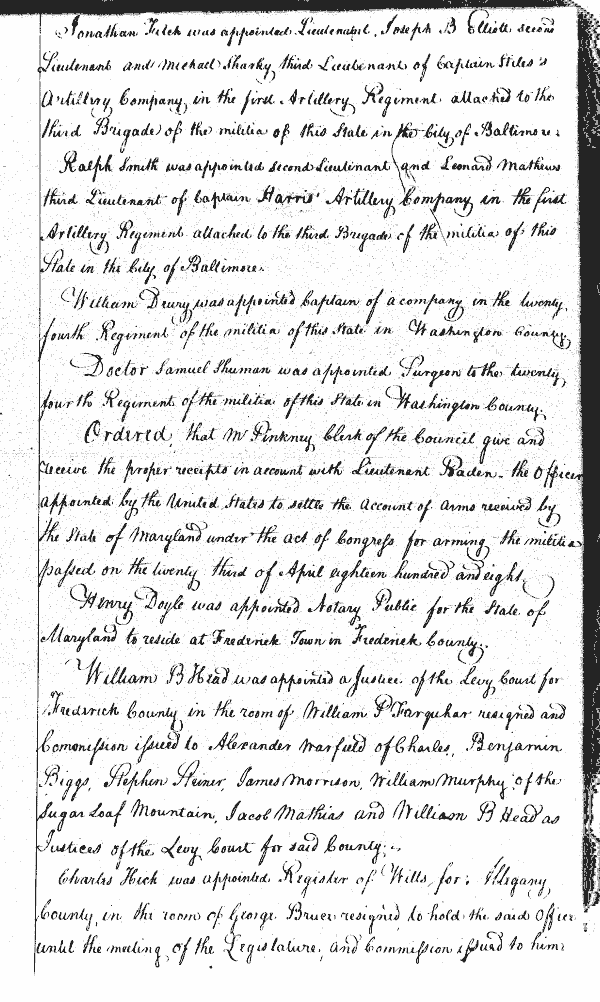 Jonathan Fitch was appointed Lieutenant, Joseph B Elliott second
Lieutenant and Michael Sharky third Lieutenant of Captain Stiles's
Artillery Company in the first Artillery Regiment attached to the
third Brigade of the militia of this State in the City of Baltimore.
Ralph Smith was appointed second Lieutenant and Leonard Mathews
third Lieutenant of Captain Harris' Artillery Company in the first
Artillery Regiment attached to the third Brigade of the militia of this
State in the City of Baltimore.
William Drury was appointed Captain of a company in the twenty
fourth Regiment of the militia of this State in Washington County
Doctor Samuel Shuman was appointed Surgeon to the twenty
fourth Regiment of the militia of this State in Washington County.
Ordered, that Mr Pinkney Clerk of the Council give and
receive the proper receipts in account with Lieutenant Baden - the Officer
appointed by the United States to settle the account of arms received by
the State of Maryland under the act of Congress for arming the militia
passed on the twenty third of April eighteen hundred and eight
Henry Doyle was appointed Notary Public for the State of
Maryland to reside at Frederick Town in Frederick County.
William B Head was appointed a Justice of the Levy Court for
Frederick County in the room of William P Farquhar resigned and
Commission issued to Alexander Warfield of Charles, Benjamin
Biggs, Stephen Steiner, James Morrison, William Murphy of the
Sugar Loaf Mountain, Jacob Mathias and William B Head as
Justices of the Levy Court for said County.
Charles Heck was appointed Register of Wills for Allegany
County in the room of George Bruce resigned to hold the said Office
until the meeting of the Legislature, and Commission issued to him.